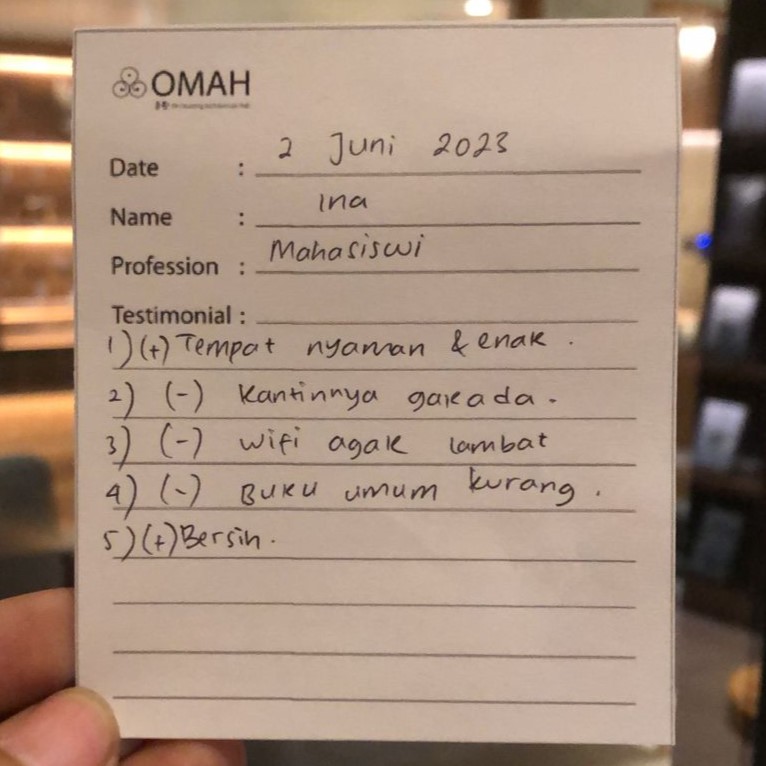 OMAH
Date : 2 Juni 2023
Name : Ina
Profession : Mahasiswi
Testimonial :
1) (+) Tempat nyaman & enak.
2) (-) Kantinnya gak ada.
3) (-) wifi agak lambat
4) (-) Buku umum kurang.
5) (+) Bersih.